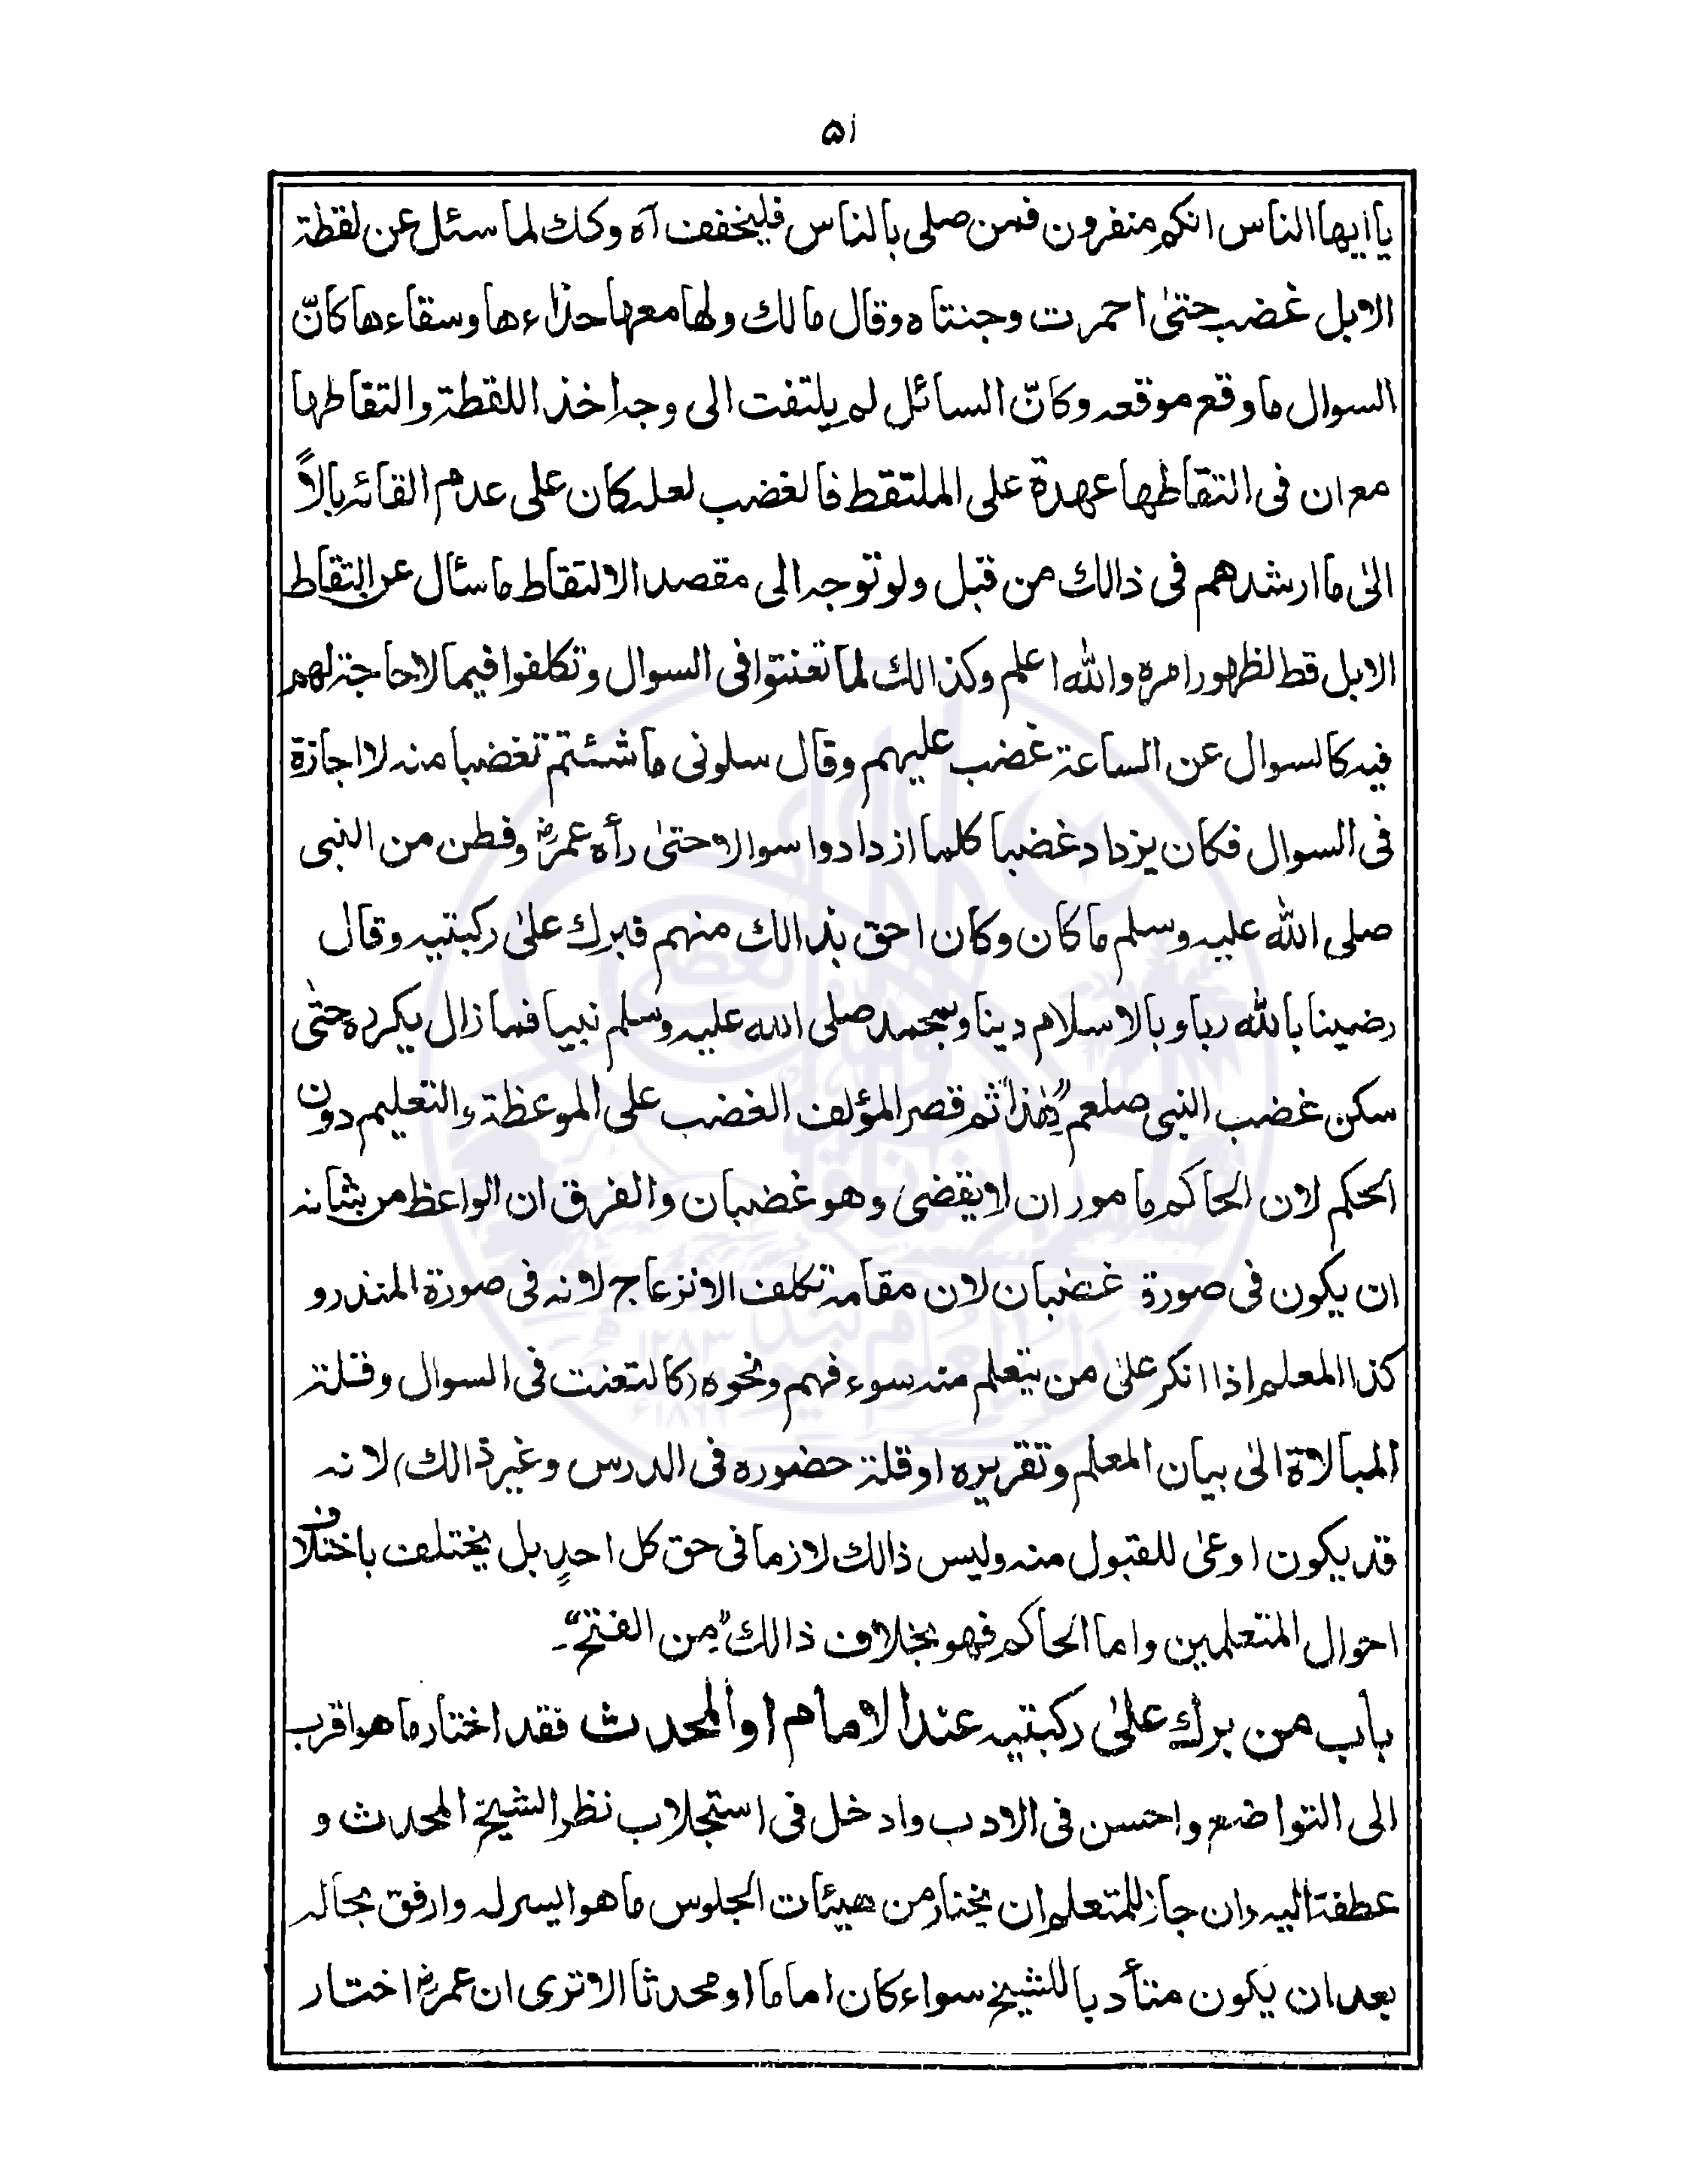 ۵۱
يا ايها الناس انكم منفرون فمن صلى بالناس فليخفف آه وكك لما سئل عن لقطة
الابل غضب حتىٰ احمرت وجنتاه وقال مالك ولها معها حذاءها وسقاءها كانّ
السوال ما وقع موقعه وكانّ السائل لم يلتفت الى وجه اخذ اللقطة والتقاطها
مع ان فى التقاطها عهدة على الملتقط فالغضب لعله كان على عدم القائه بالاً
الىٰ ما ارشدهم فى ذالك من قبل ولو توجه الى مقصد الالتقاط ما سئال عن التقاط
الابل قط لظهور امره والله اعلم وكذالك لما تعنتوا فى السوال وتكلفوا فيما لاحاجة لهم
فيه كالسوال عن الساعة غضب عليهم وقال سلونى ما شئتم تغضبا منه لا اجازة
فى السوال فكان يزداد غضبا كلما ازدادوا سوالا حتىٰ رأه عمرؓ وفطن من النبى
صلى الله عليه وسلم ما كان وكان احق بذالك منهم فبرك علىٰ ركبتيه وقال
رضينا بالله ربا وبالاسلام دينا وبمحمد صلى الله عليه وسلم نبيا فما زال يكرره حتىٰ
سكن غضب النبى صلعم هٰذا ثم قصر المؤلف الغضب على الموعظة والتعليم دون
الحكم لان الحاكم مامور ان لا يقضى وهو غضبان والفرق ان الواعظ من شانه
ان يكون فى صورة غضبان لان مقامه تكلف الانزعاج لانه فى صورة المنذر و
كذا المعلم اذا انكر علىٰ من يتعلم منه سوء فهم ونحوه (كالتعنت فى السوال وقلة
المبالاة الىٰ بيان المعلم وتقريره او قلة حضوره فى الدرس وغير ذالك) لانه
قد يكون اوعىٰ للقبول منه وليس ذالك لازما فى حق كل احدٍ بل يختلف باختلاف
احوال المتعلمين واما الحاكم فهو بخلاف ذالك" من الفتح"۔
باب من برك علىٰ ركبتيه عند الامام او المحدث فقد اختار ما هو اقرب
الى التواضع واحسن فى الادب وادخل فى استجلاب نظر الشيخ المحدث و
عطفة اليه وان جاز للمتعلم ان يختار من هيئات الجلوس ما هو ايسر له وارفق بحاله
بعد ان يكون متأدبا للشيخ سواء كان اماما او محدثا الا ترى ان عمرؓ اختار